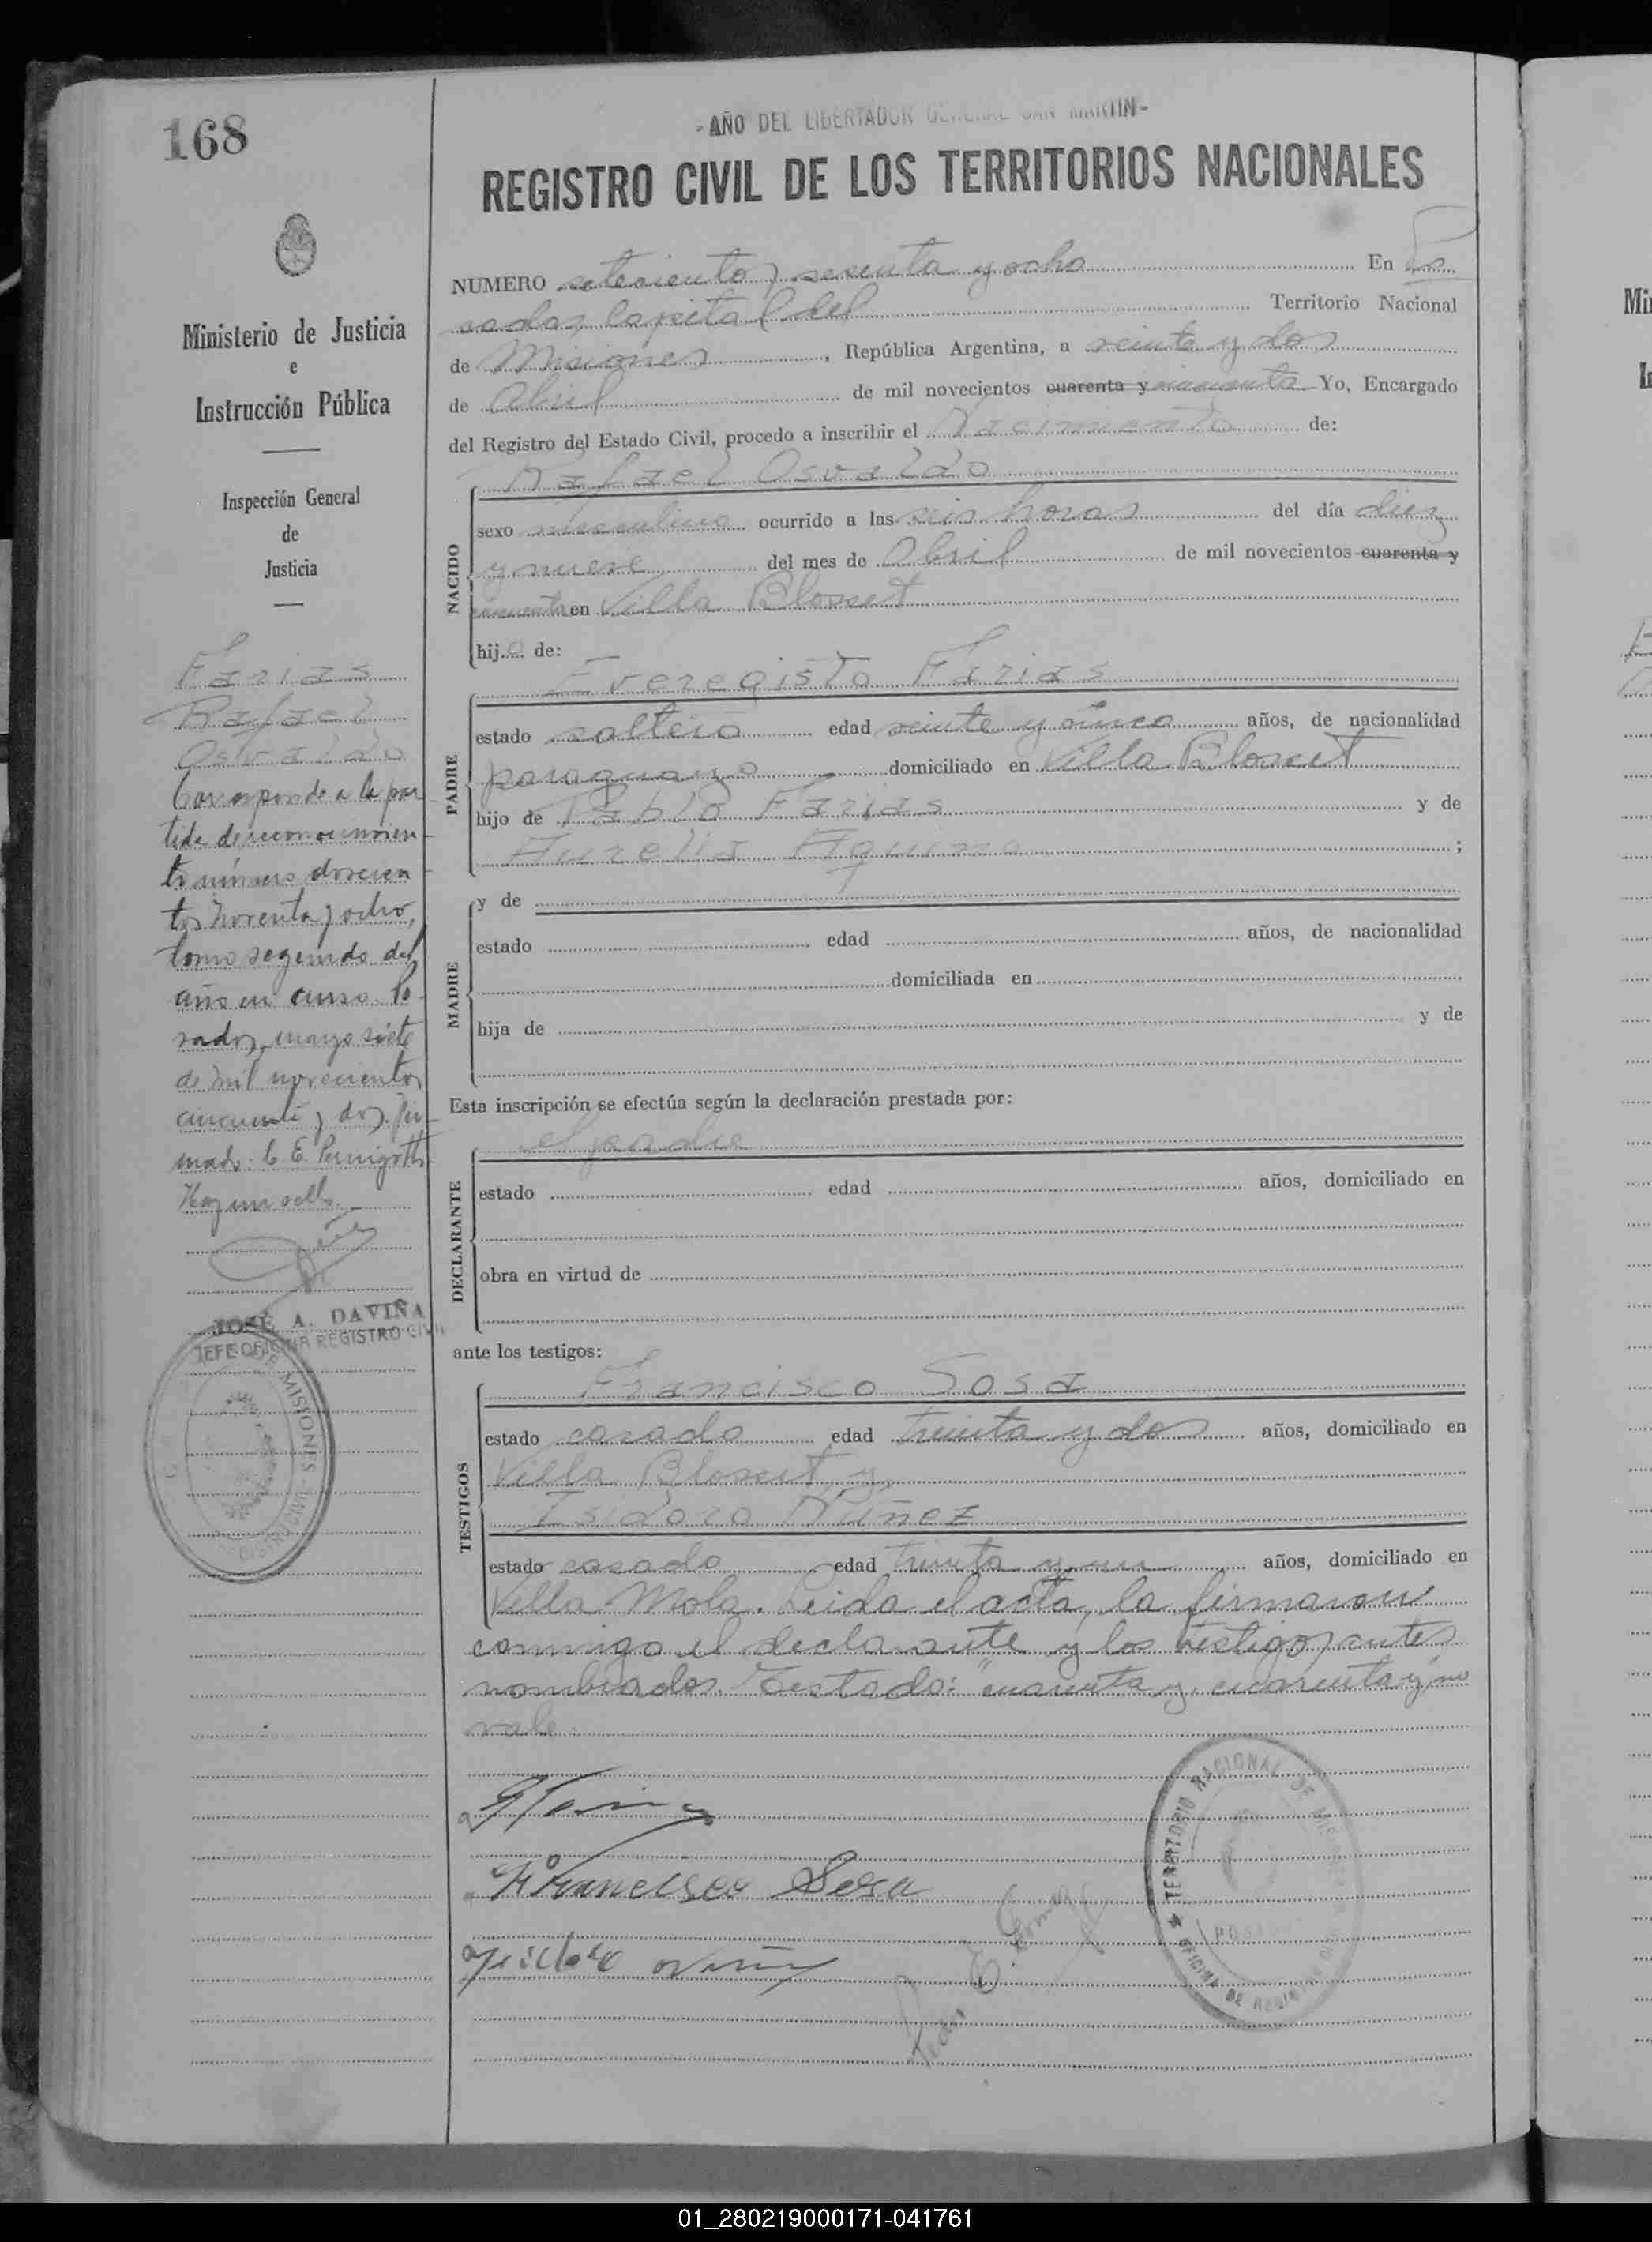 168
- AÑO DEL LIBERTADOR GENERAL SAN MARTIN -
REGISTRO CIVIL DE LOS TERRITORIOS NACIONALES
Ministerio de Justicia
e
Instrucción Pública
Inspección General
de
Justicia
Farias
Rafael
Osvaldo
Corresponde a la par
tida de reconocimien
to número doscien
tos noventa y ocho,
tomo segundo del
año en curso. Po
sadas, mayo siete
de mil novecientos
cincuenta y dos. Fir
mado: C. E. Pernigotti
Hay un sello.
JOSÉ A. DAVIÑA
JEFE OFICINA REGISTRO CIVIL
MISIONES
NUMERO setecientos sesenta y ocho En Po
sadas Capital del Territorio Nacional
de Misiones, República Argentina, a veinte y dos
de Abril de mil novecientos cuarenta y cincuenta Yo, Encargado
del Registro del Estado Civil, procedo a inscribir el Nacimiento de:
NACIDO
Rafael Osvaldo
sexo masculino ocurrido a las seis horas del día diez
y nueve del mes de Abril de mil novecientos cuarenta y
cincuenta en Villa Blosset
hijo de:
PADRE
Everegisto Farias
estado soltero edad veinte y cinco años, de nacionalidad
paraguayo domiciliado en Villa Blosset
hijo de Pablo Farias y de
Aurelia Aquino ;
MADRE
y de
estado edad años, de nacionalidad
domiciliada en
hija de y de
Esta inscripción se efectúa según la declaración prestada por:
DECLARANTE
el padre
estado edad años, domiciliado en
obra en virtud de
ante los testigos:
TESTIGOS
Francisco Sosa
estado casado edad treinta y dos años, domiciliado en
Villa Blosset y
Isidoro Núñez
estado casado edad treinta y un años, domiciliado en
Villa Mola. Leida el acta, la firmaron
conmigo el declarante y los testigos antes
nombrados. Testado: "cuarenta y, cuarenta y" no
vale.
Francisco Sosa
TERRITORIO NACIONAL DE MISIONES
POSADAS
OFICINA DE REGISTRO
01_280219000171-041761